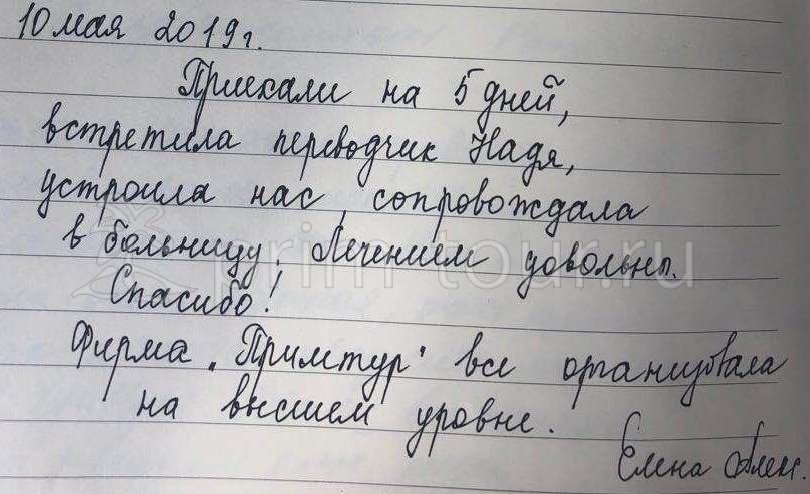 10 мая 2019г.
Приехали на 5 дней,
встретила переводчик Надя,
устроила нас, сопровождала
в больницу. Лечением довольны.
Спасибо!
Фирма „Примтур" все организовала
на высшем уровне.
Елена Алек.
prim-tour.ru